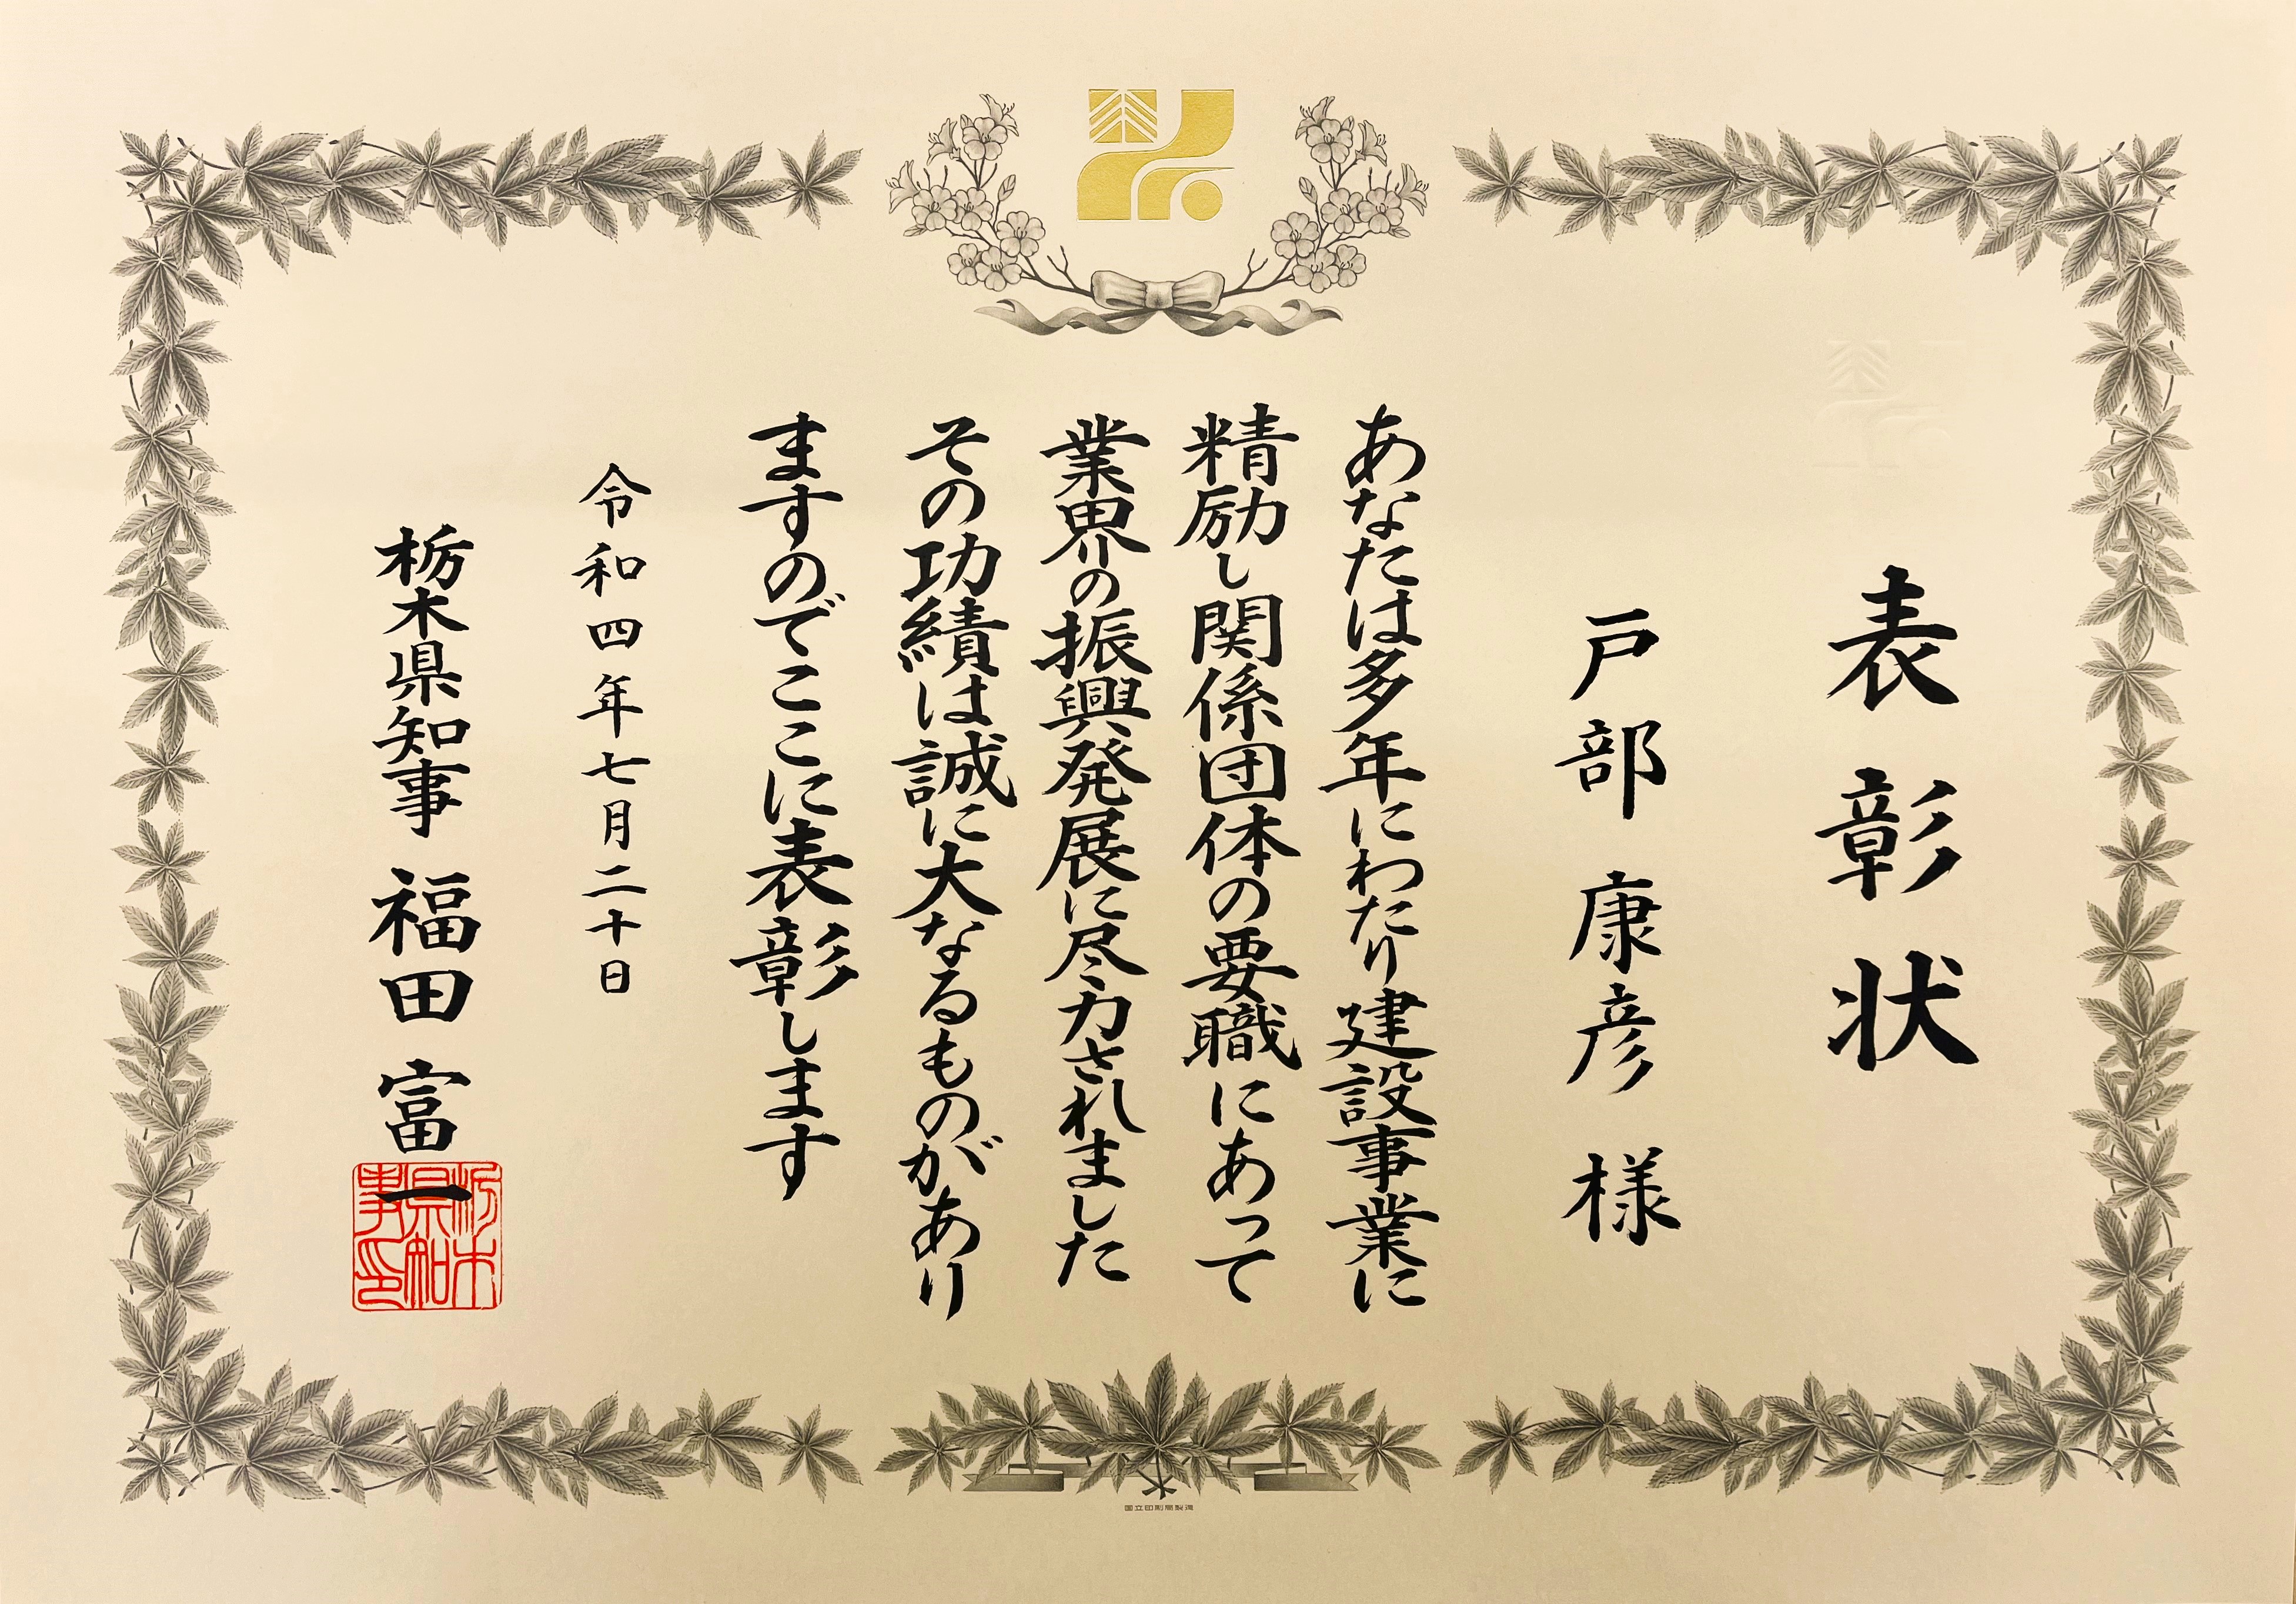 表彰状
戸部康彦様
あなたは多年にわたり建設事業に
精励し関係団体の要職にあって
業界の振興発展に尽力されました
その功績は誠に大なるものがあり
ますのでここに表彰します
令和四年七月二十日
栃木県知事 福田富一
栃木県知事印
国立印刷局製造